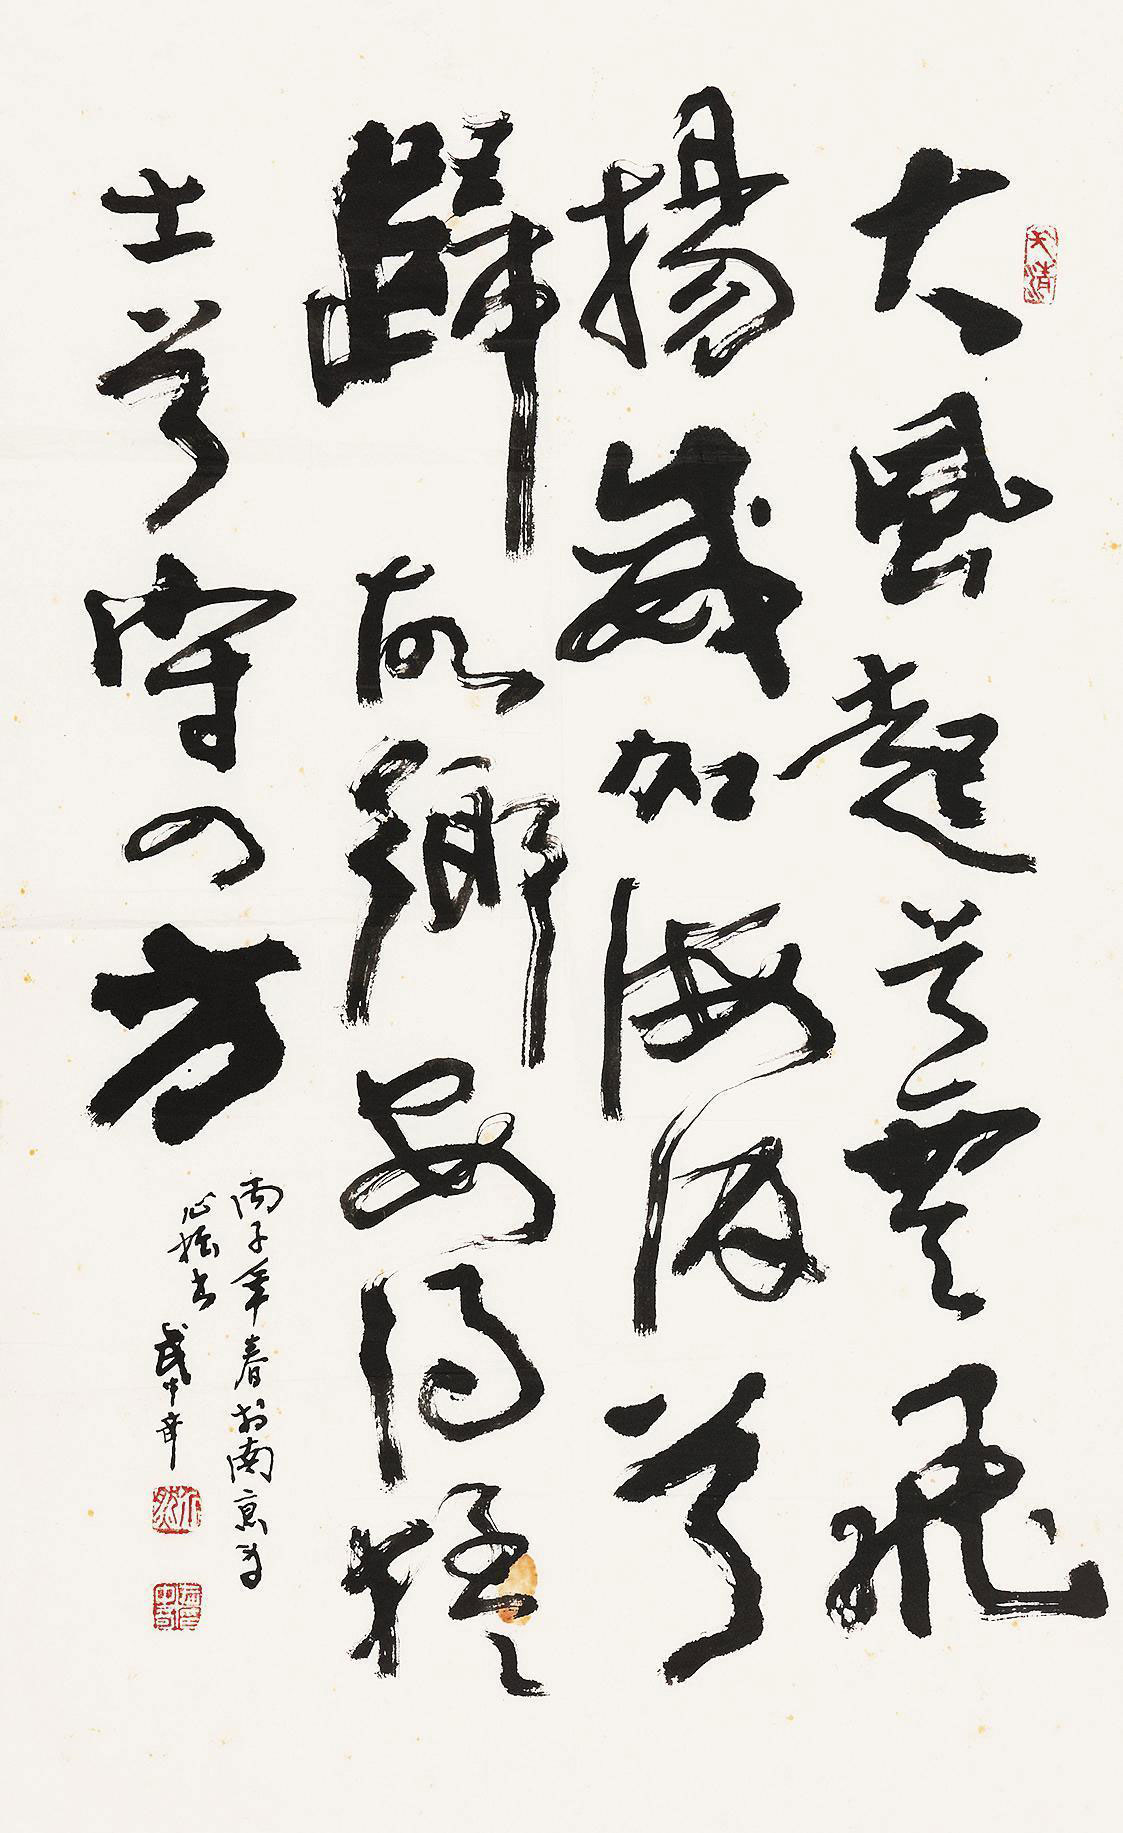 大風起兮雲飛
揚威加海内兮
歸故鄉安得猛
士兮守四方
丙子年春於南京
書 武中奇